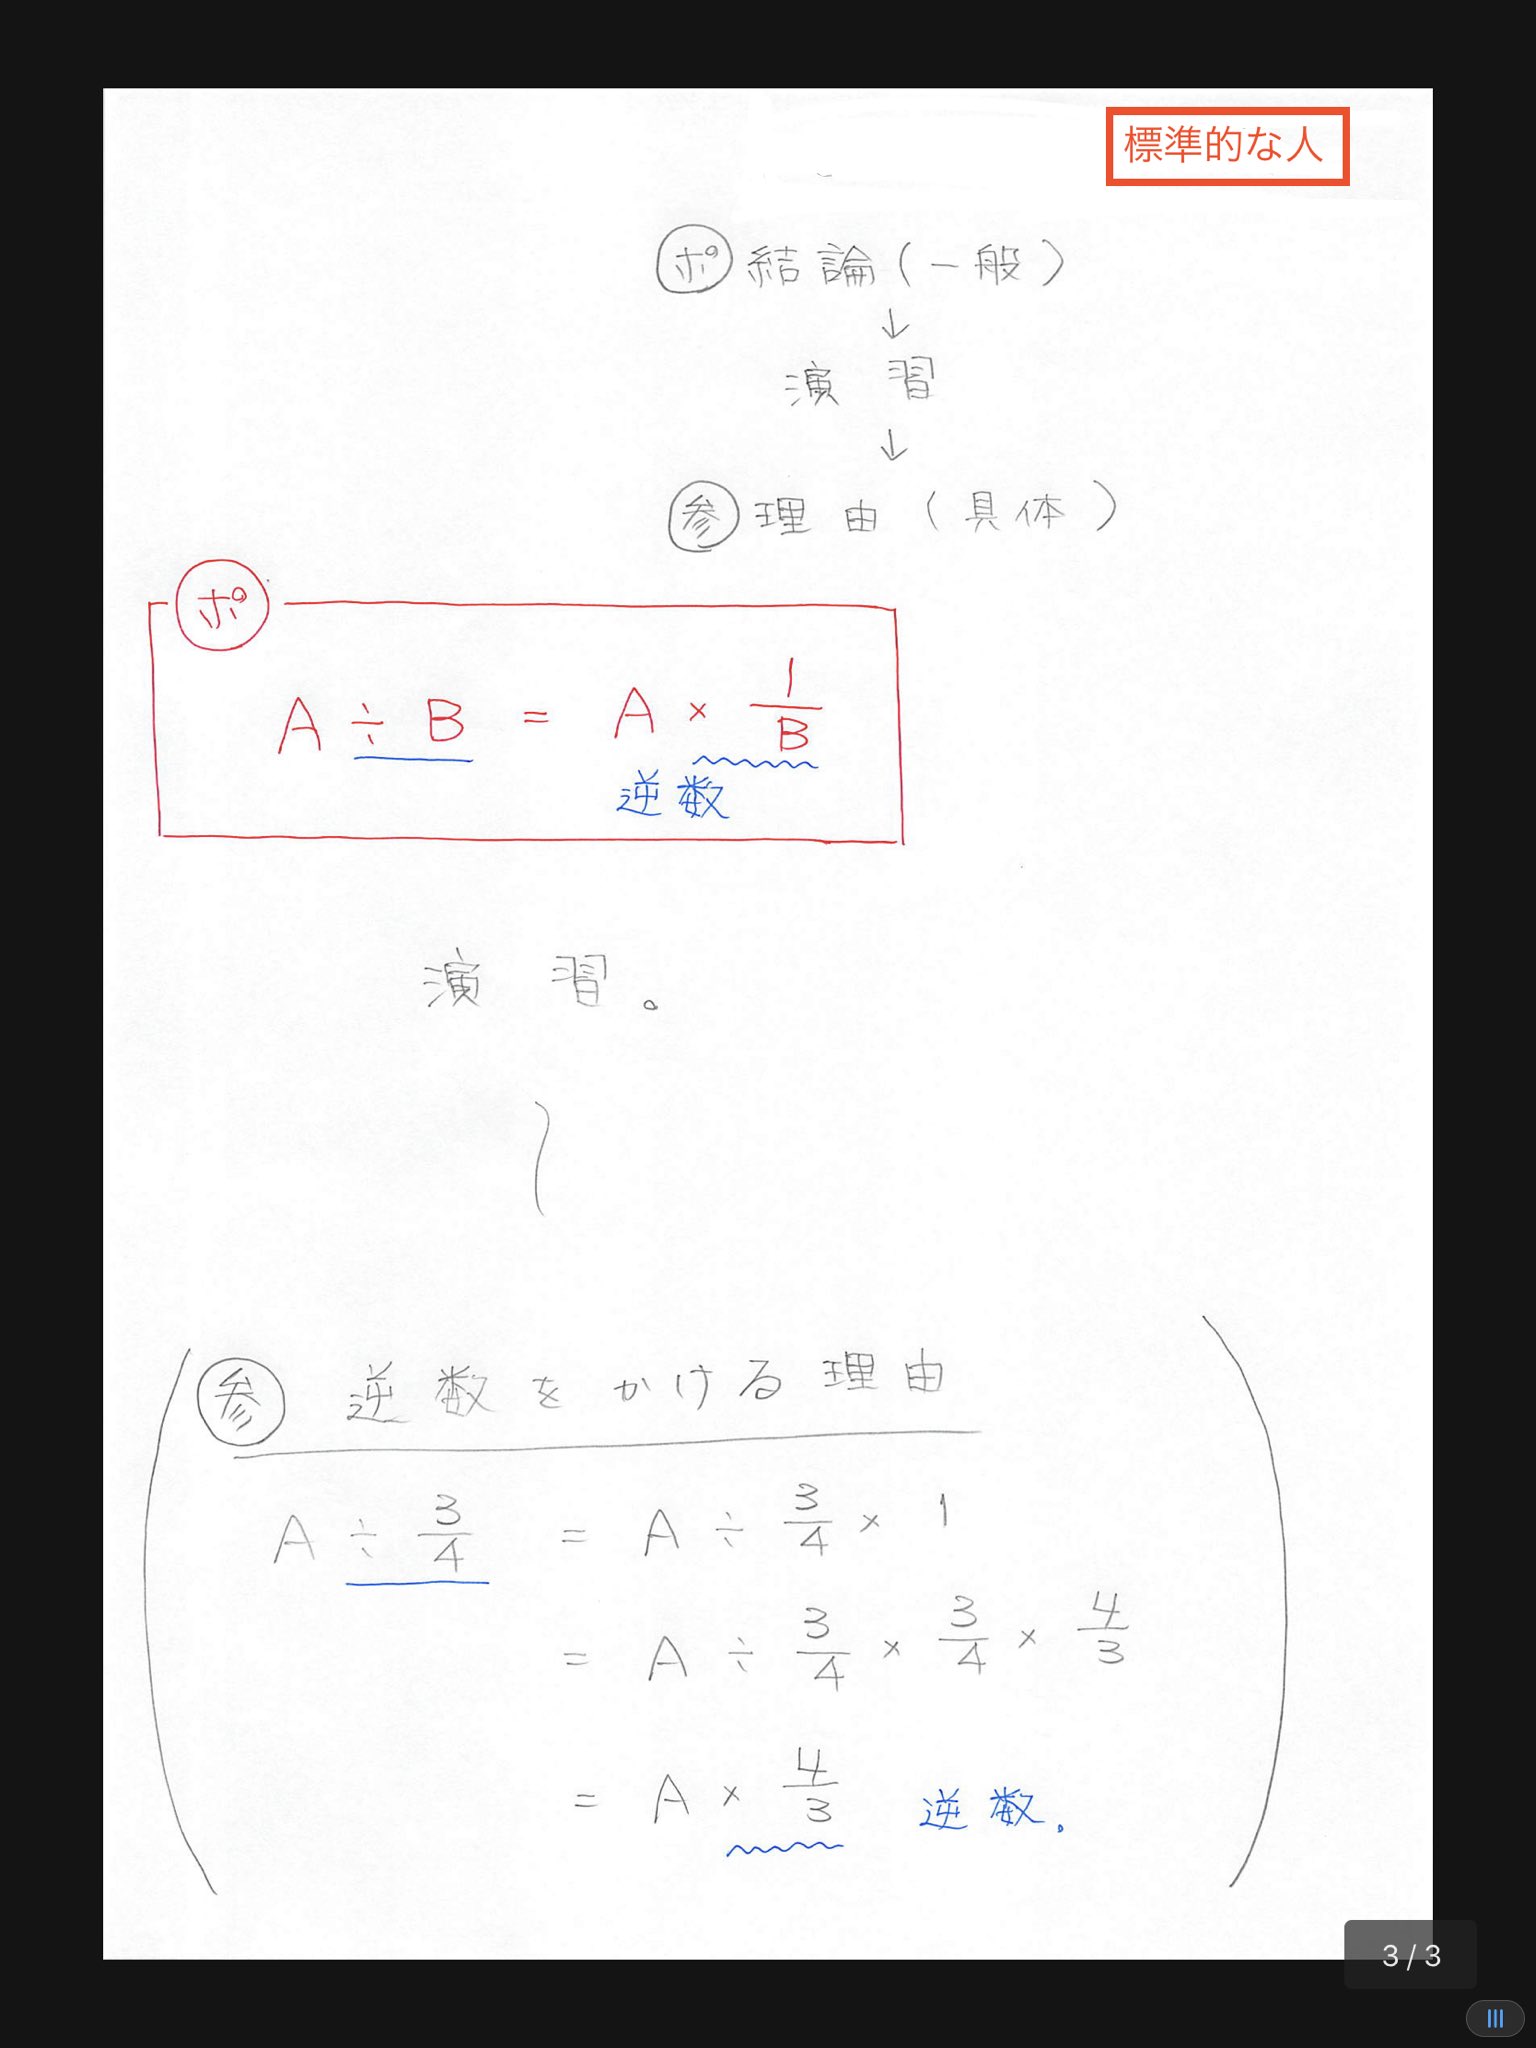 標準的な人
ポ 結論(一般)
↓
演習
↓
参 理由(具体)
ポ
A ÷ B = A × 1/B
逆数
演習。
参 逆数をかける理由
A ÷ 3/4 = A ÷ 3/4 × 1
= A ÷ 3/4 × 3/4 × 4/3
= A × 4/3 逆数.
3 / 3